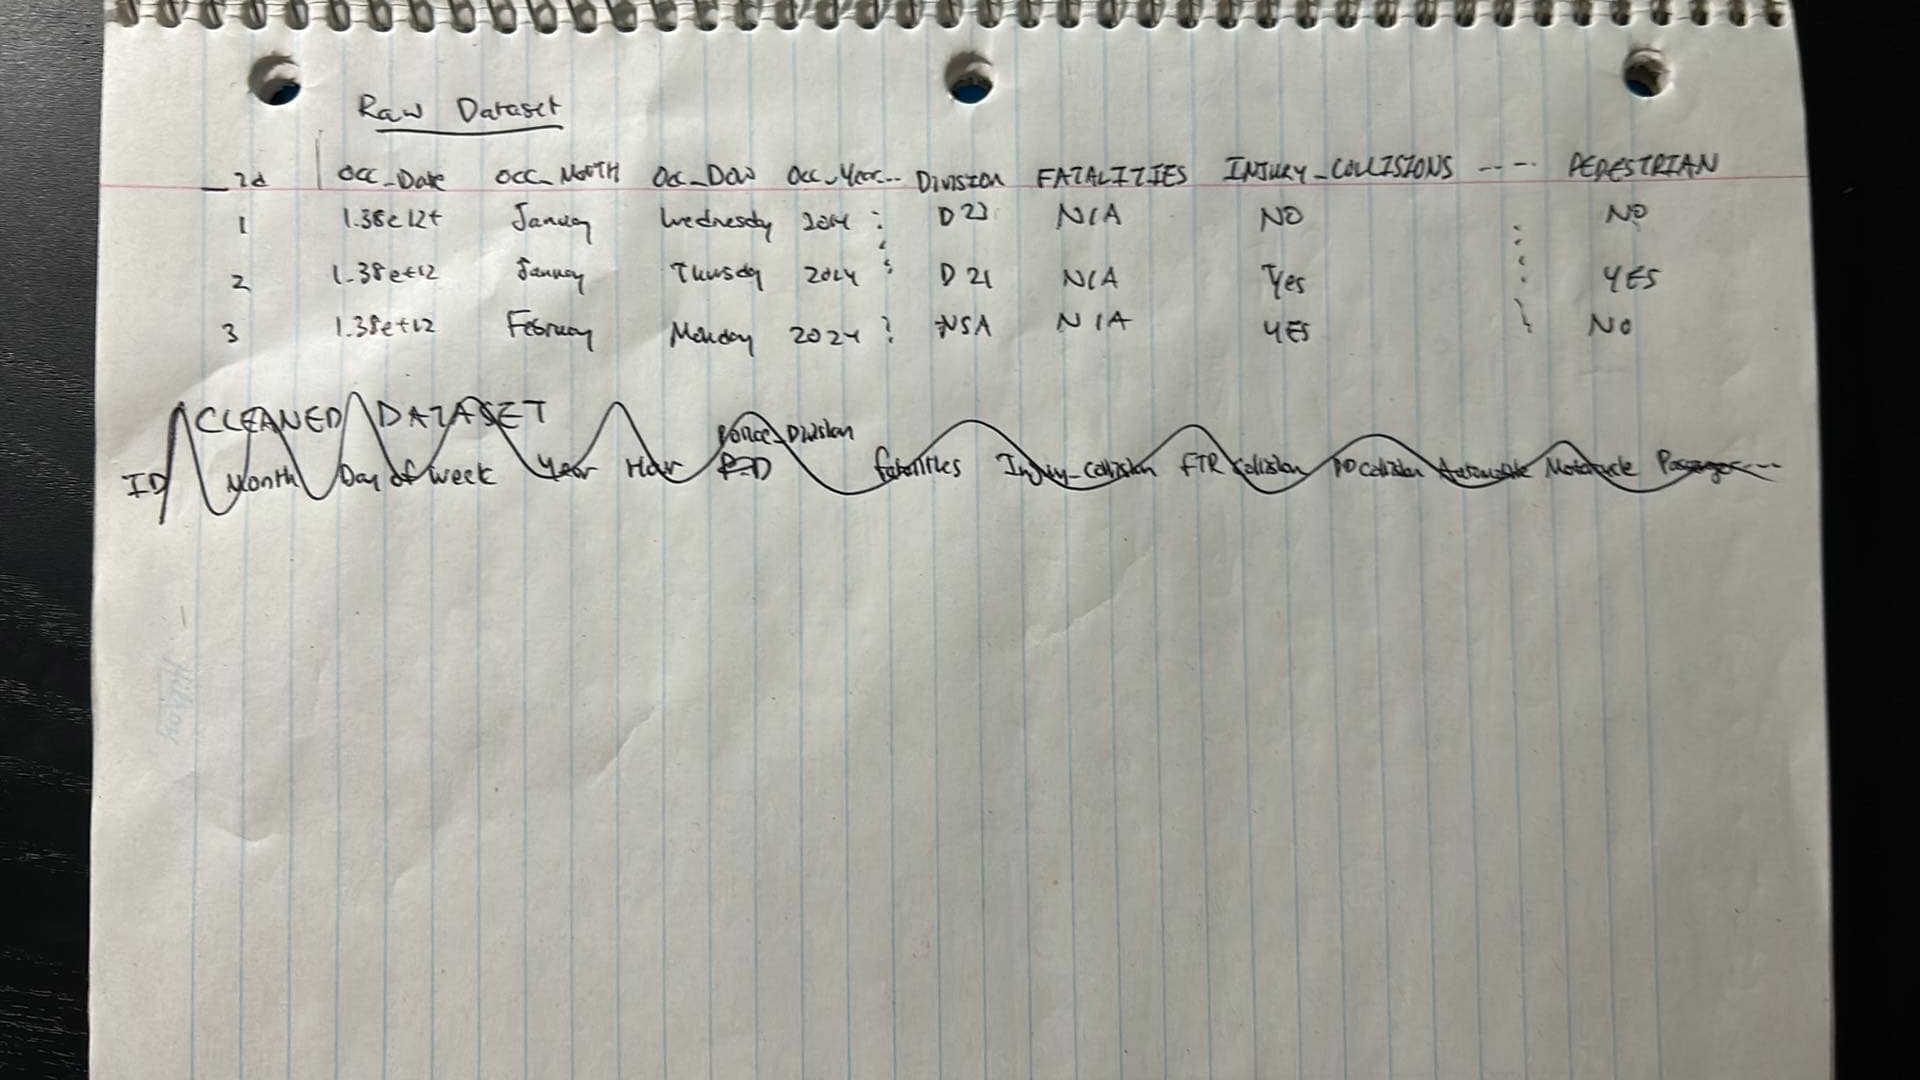 Raw Dataset
_id OCC_Date OCC_MONTH OCC_DOW OCC_Year... DIVISION FATALITIES INJURY_COLLISIONS ----- PEDESTRIAN
1 1.38e12+ January Wednesday 2014 : D23 N/A NO : NO
2 1.38e+12 January Thursday 2014 : D21 N/A Yes : YES
3 1.38e+12 February Monday 2024 : NSA N/A YES : NO
CLEANED DATASET
Police_Division
ID Month Day of week Year Hour Fatalities Injury_collision FTR Collision PD Collision Automobile Motorcycle Passenger---